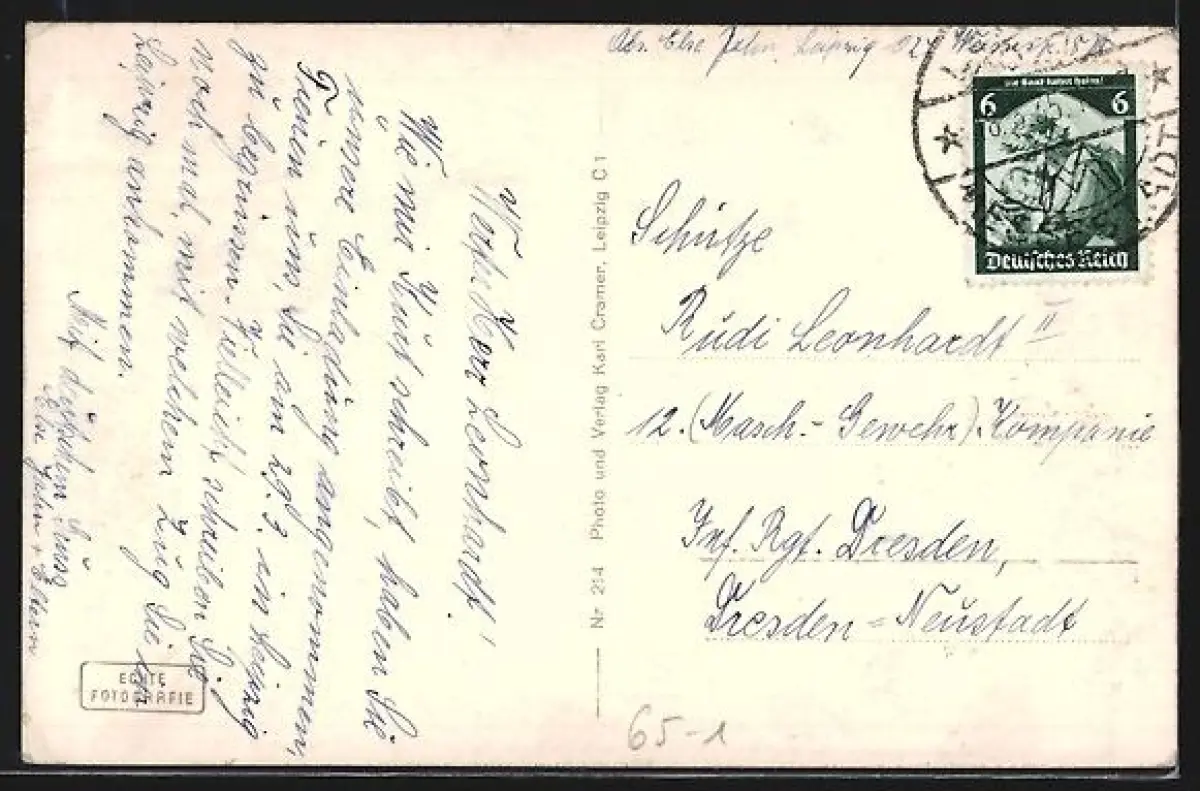 Abs. Else Jahn, Leipzig O27
Werter Herr Leonhardt!
Wie mir Kurt schreibt, haben Sie
unsere Einladung angenommen,
Freuen uns, Sie am 29.3. in Leipzig
zu begrüssen. Vielleicht schreiben Sie
noch mal, mit welchen Zug Sie in
Leipzig ankommen.
Mit deutschem Gruss
Else Jahn + Eltern
ECHTE
FOTOGRAFIE
Nr 214 Photo und Verlag Karl Cramer, Leipzig C 1
Die Saar kehrt heim!
6 6
Deutsches Reich
Schütze
Rudi Leonhardt II
12. (Masch.- Gewehr) Kompanie
Inf. Rgt. Dresden,
Dresden=Neustadt
65-1